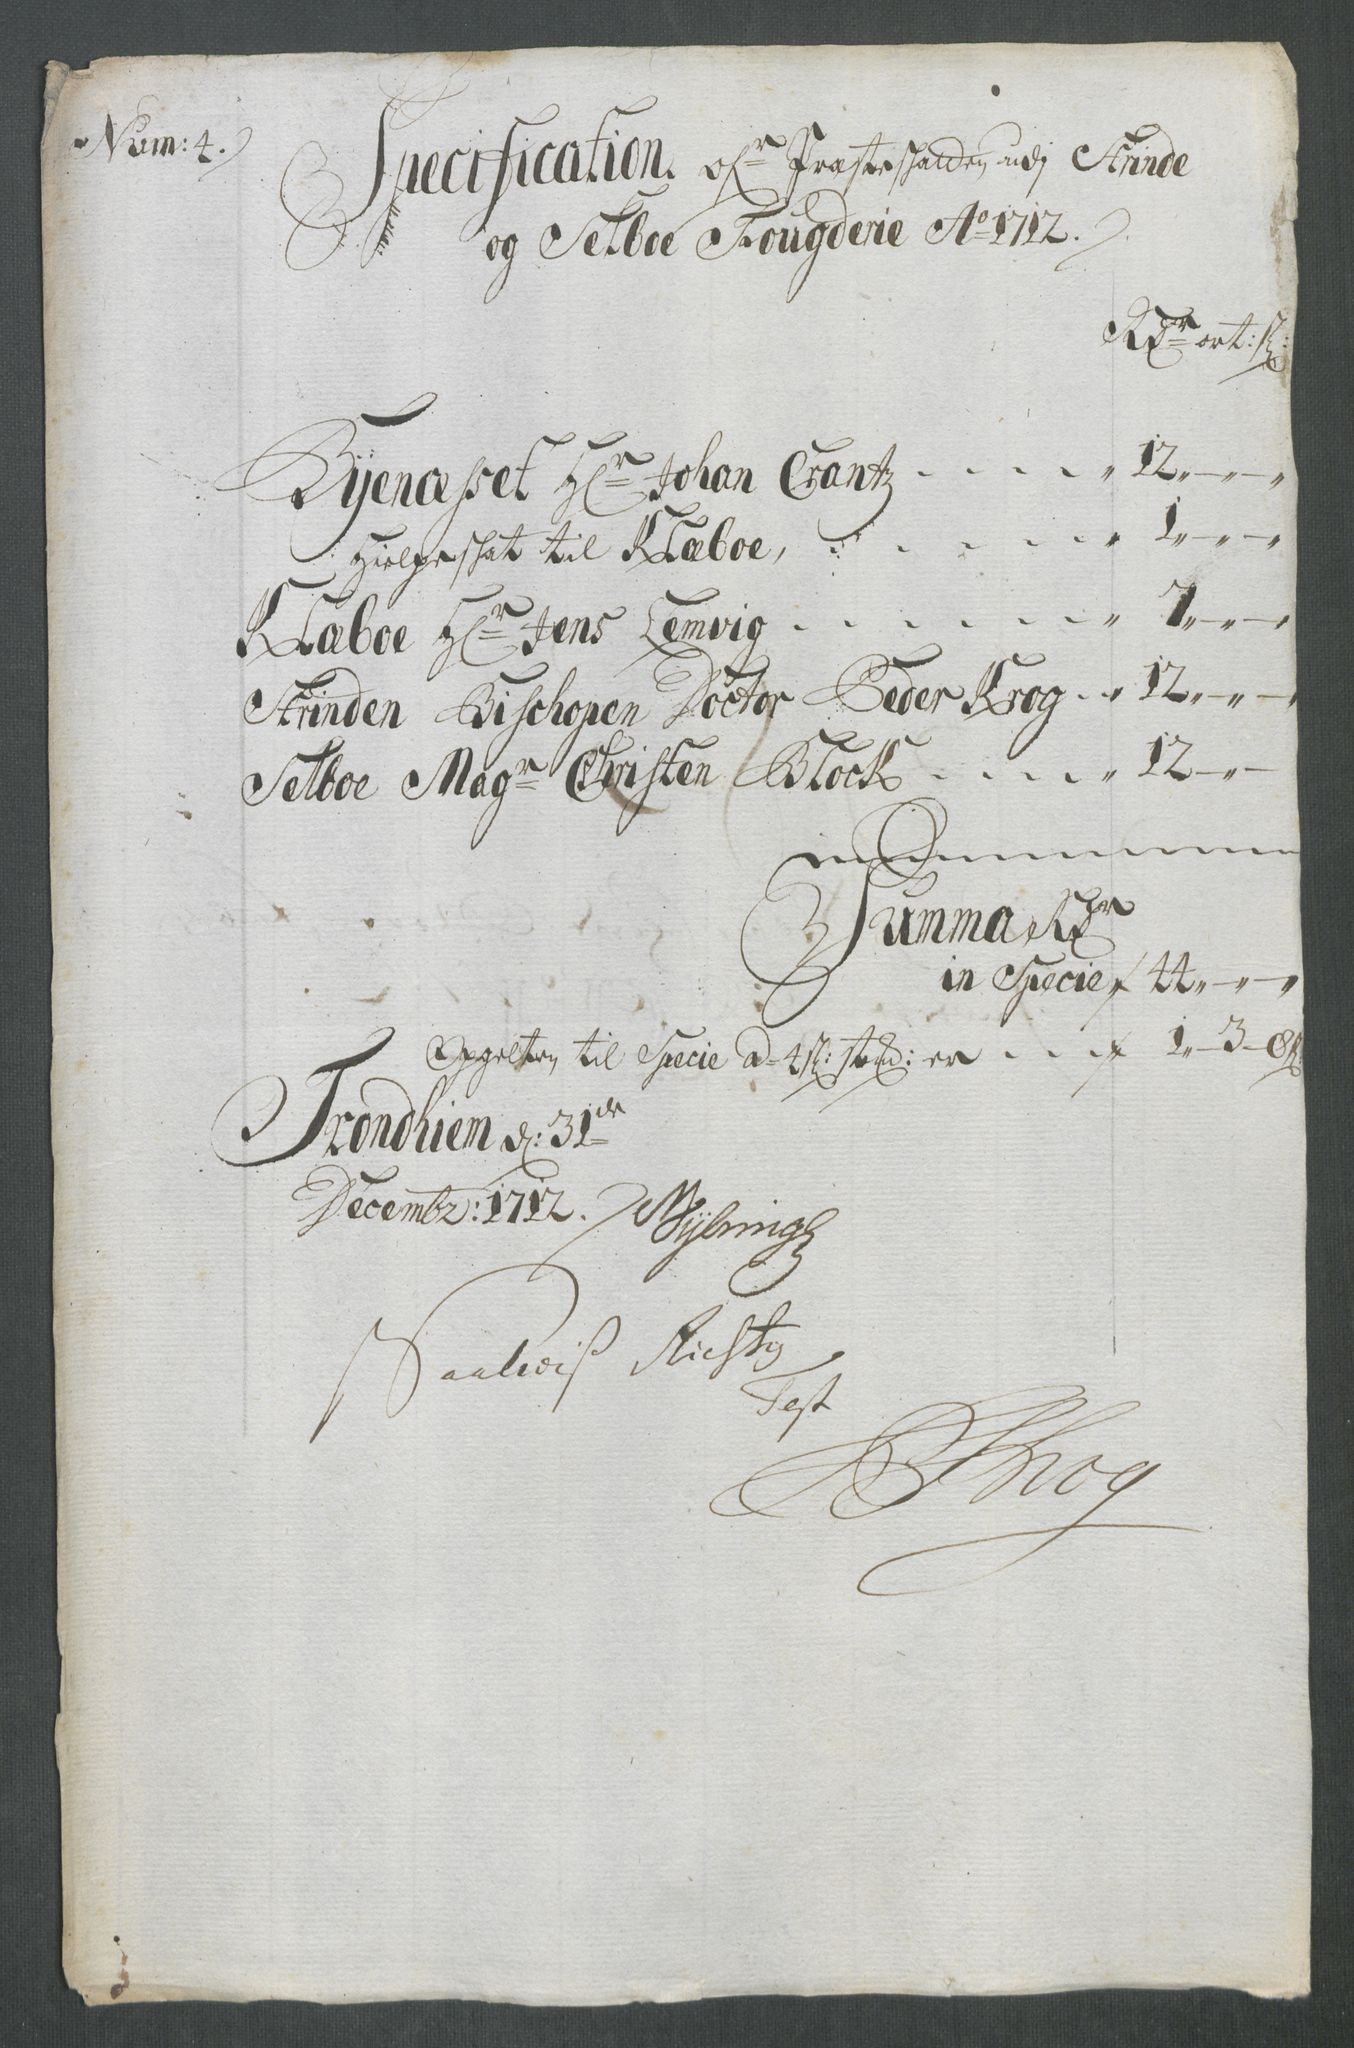 Num: 4.
Specification ofr Præsteschatten udj Strinde
og Selboe Fougderie Ao 1712.
Rdr ort: sk:
Byenæsset Hr Johan Crantz 12 „ — „ — „
Hielpeschat til Klæboe, 1 „ — „ — „
Klæboe Hr Jens Lemvig 7 „ — „ — „
Strinden Bischopen Doctor Peder Krog 12 „ — „ — „
Selboe Magr Christen Block 12 — „ —
Summa Rdr
in Specie 44 „ — „ — „
Opgelten til Specie a 4 sk: stkd: er 1 „ — 3 — 8 s
Trondhiem d: 31de
Decembr: 1712.
Saaledis Richtig
Test
Krog